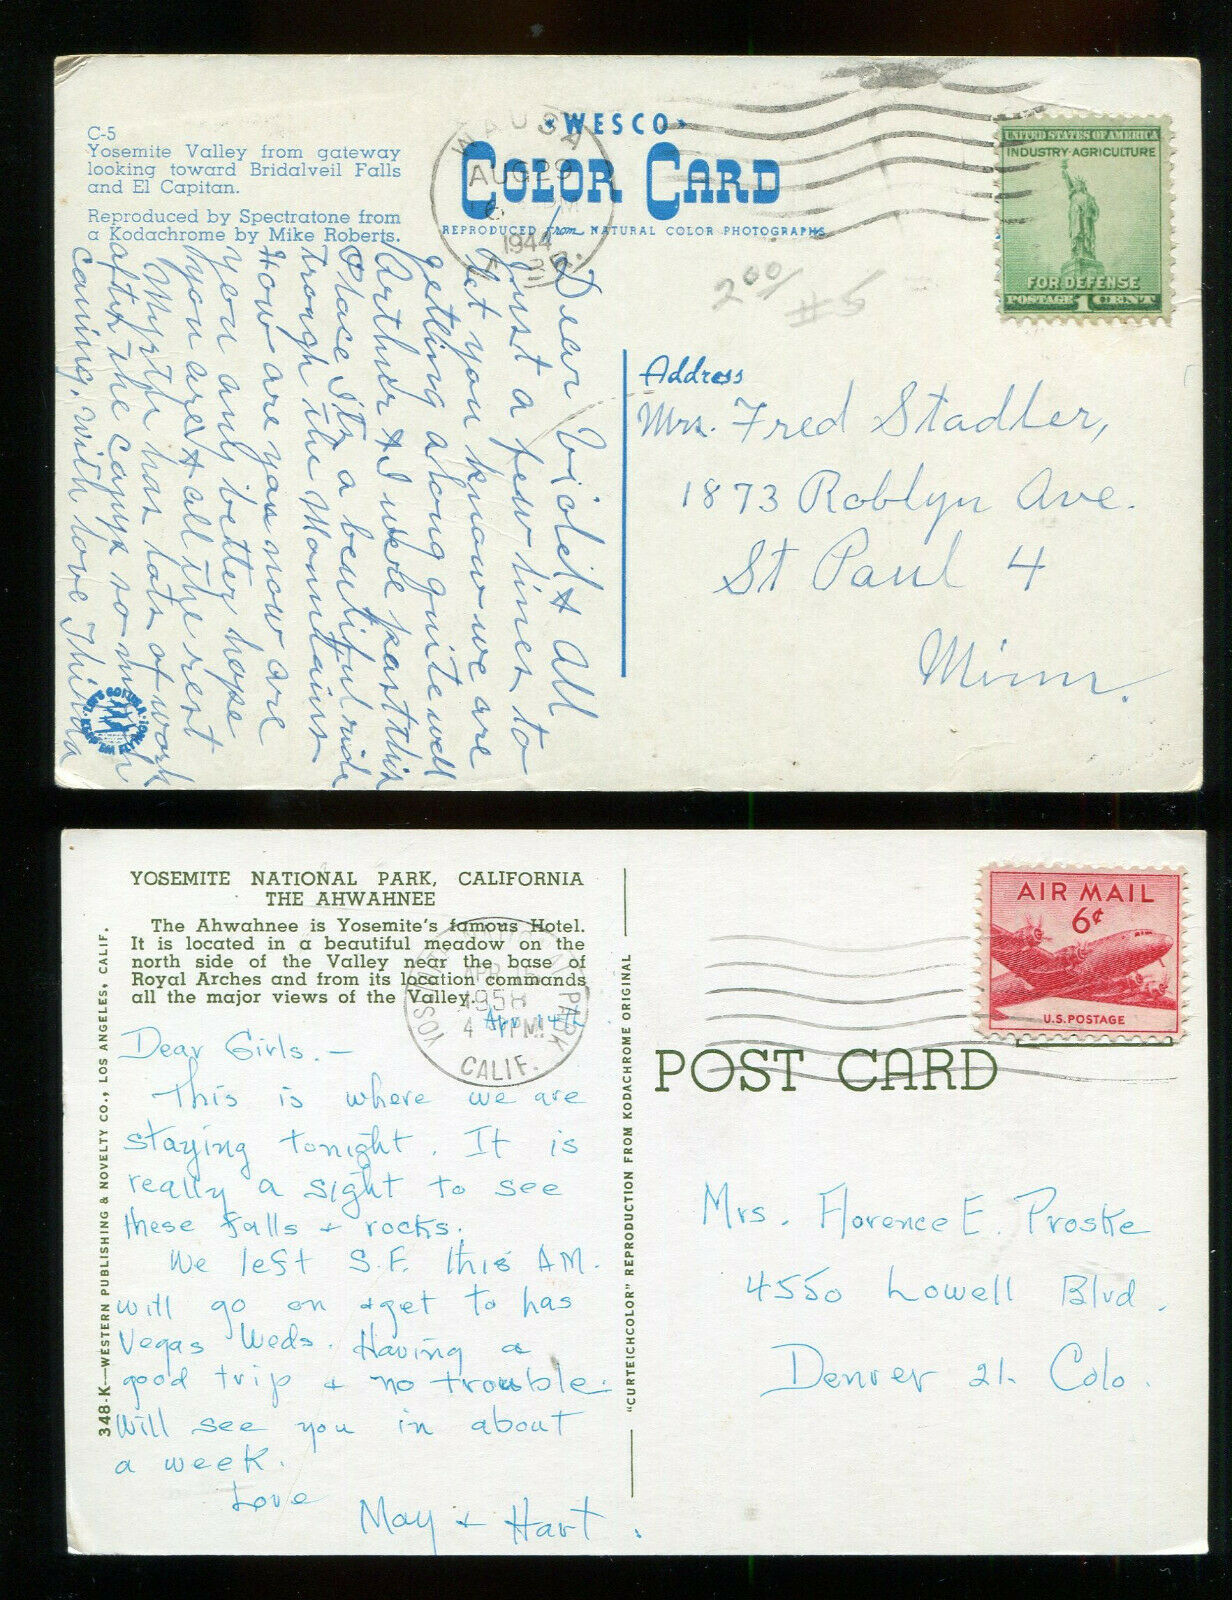 C-5
Yosemite Valley from gateway
looking toward Bridalveil Falls
and El Capitan.
Reproduced by Spectratone from
a Kodachrome by Mike Roberts.
WAUSA
AUG 29
6 PM
1944
WESCO
COLOR CARD
REPRODUCED from NATURAL COLOR PHOTOGRAPHS
UNITED STATES OF AMERICA
INDUSTRY·AGRICULTURE
FOR DEFENSE
POSTAGE 1 CENT
2 00/
#5
Dear Violet & All
Just a few lines to
let you know we are
getting along quite well
Arthur & I were past this
Place Its a beutiful ride
trough the Mountains
How are you now are
you any better hope
you are & all the rest
has lots of work
after the so much
caning. with love Thilda
Address
Mrs. Fred Stadler,
1873 Roblyn Ave.
St Paul 4
Minn.
YOSEMITE NATIONAL PARK, CALIFORNIA
THE AHWAHNEE
The Ahwahnee is Yosemite's famous Hotel.
It is located in a beautiful meadow on the
north side of the Valley near the base of
Royal Arches and from its location commands
all the major views of the Valley.
348-K—WESTERN PUBLISHING & NOVELTY CO., LOS ANGELES, CALIF.
APR 15
1958
4 PM
CALIF.
Apr 14th
Dear Girls. —
This is where we are
staying tonight. It is
really a sight to see
these falls & rocks.
We left S.F. this AM.
will go on & get to has
Vegas Weds. Having a
good trip & no trouble.
Will see you in about
a week.
Love
May & Hart.
"CURTEICHCOLOR" REPRODUCTION FROM KODACHROME ORIGINAL
AIR MAIL
6¢
U.S. POSTAGE
POST CARD
Mrs. Florence E. Proske
4550 Lowell Blvd.
Denver 21. Colo.